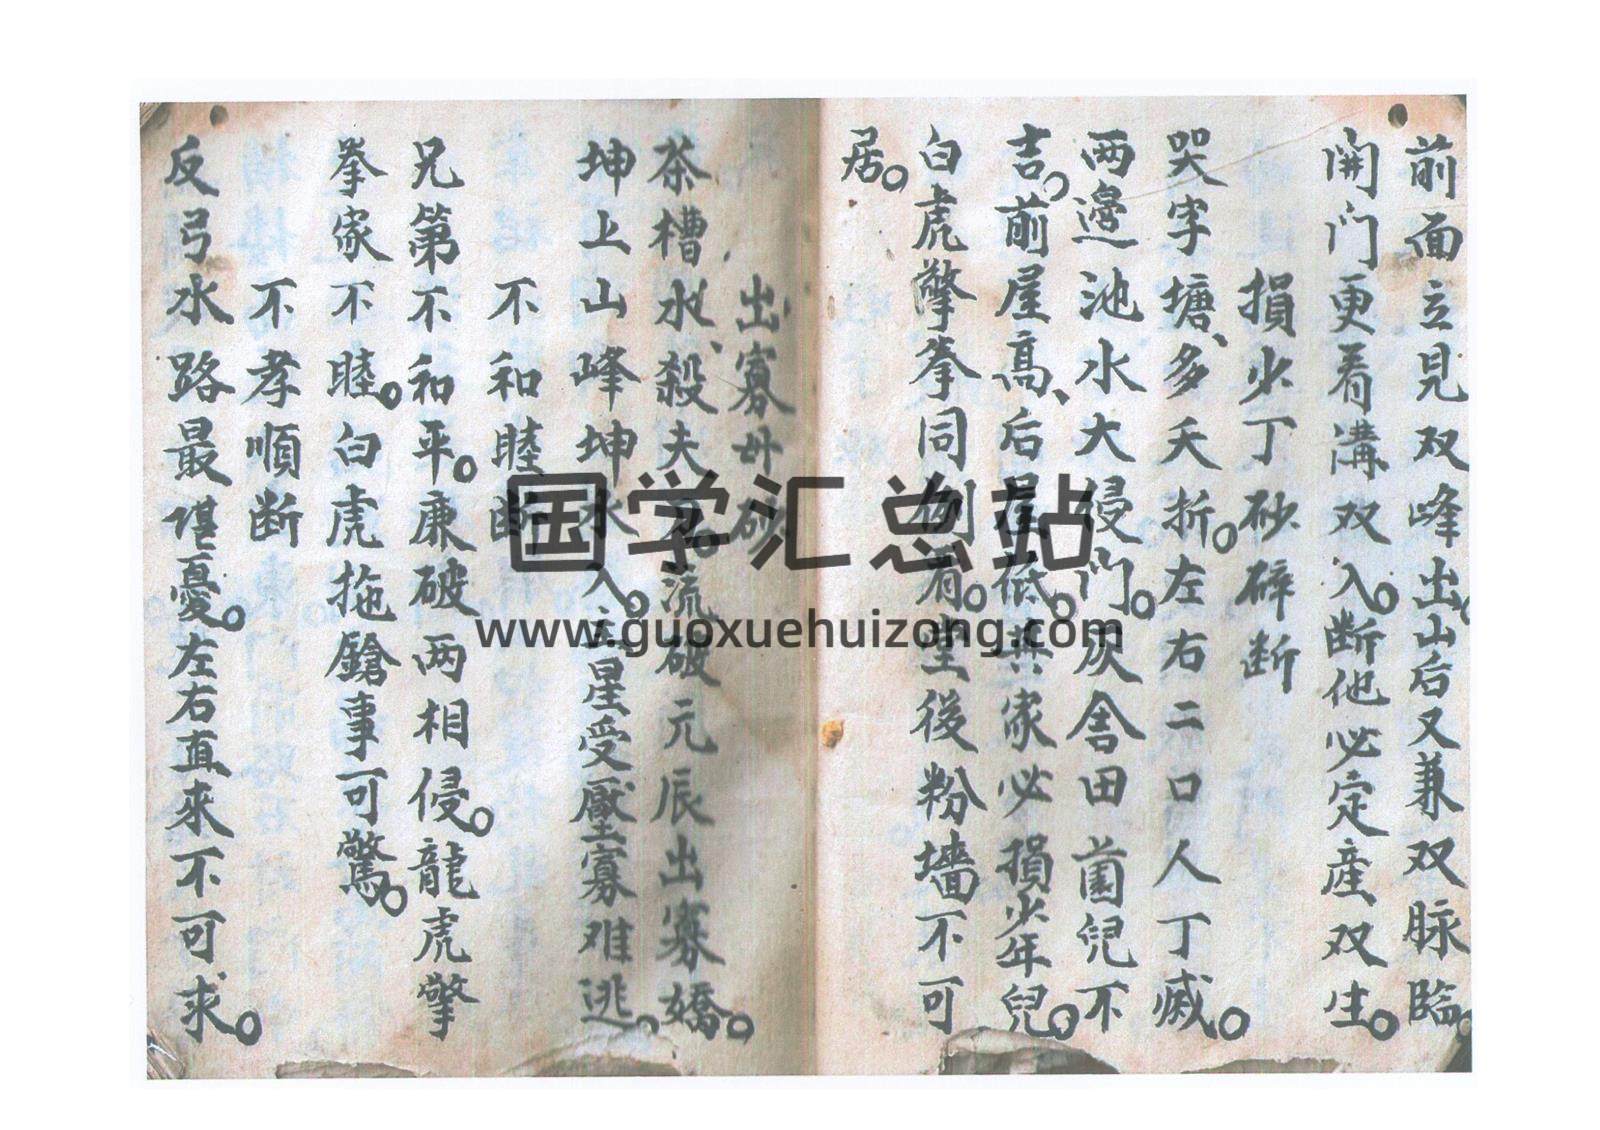 前面立見双峰出。山后又兼双脉臨。
開门更看溝双入。断他必定産双生。
損少丁砂碎断
哭字塘、多夭折。左右二口人丁滅。
两邊池水大侵门。灰舍田園兒不
吉。前屋高、后屋低。其家必損少年兒。
白虎擎拳同例看。堂後粉墻不可
居。
出寡母砂
茶槽水、殺夫。流破元辰出寡嬌。
坤上山峰坤水入。主星受壓寡难逃。
不和睦断
兄第不和平。廉破两相侵。龍虎擎
拳家不睦。白虎拖鎗事可驚。
不孝順断
反弓水路最堪憂。左右直來不可求。
国学汇总站
www.guoxuehuizong.com